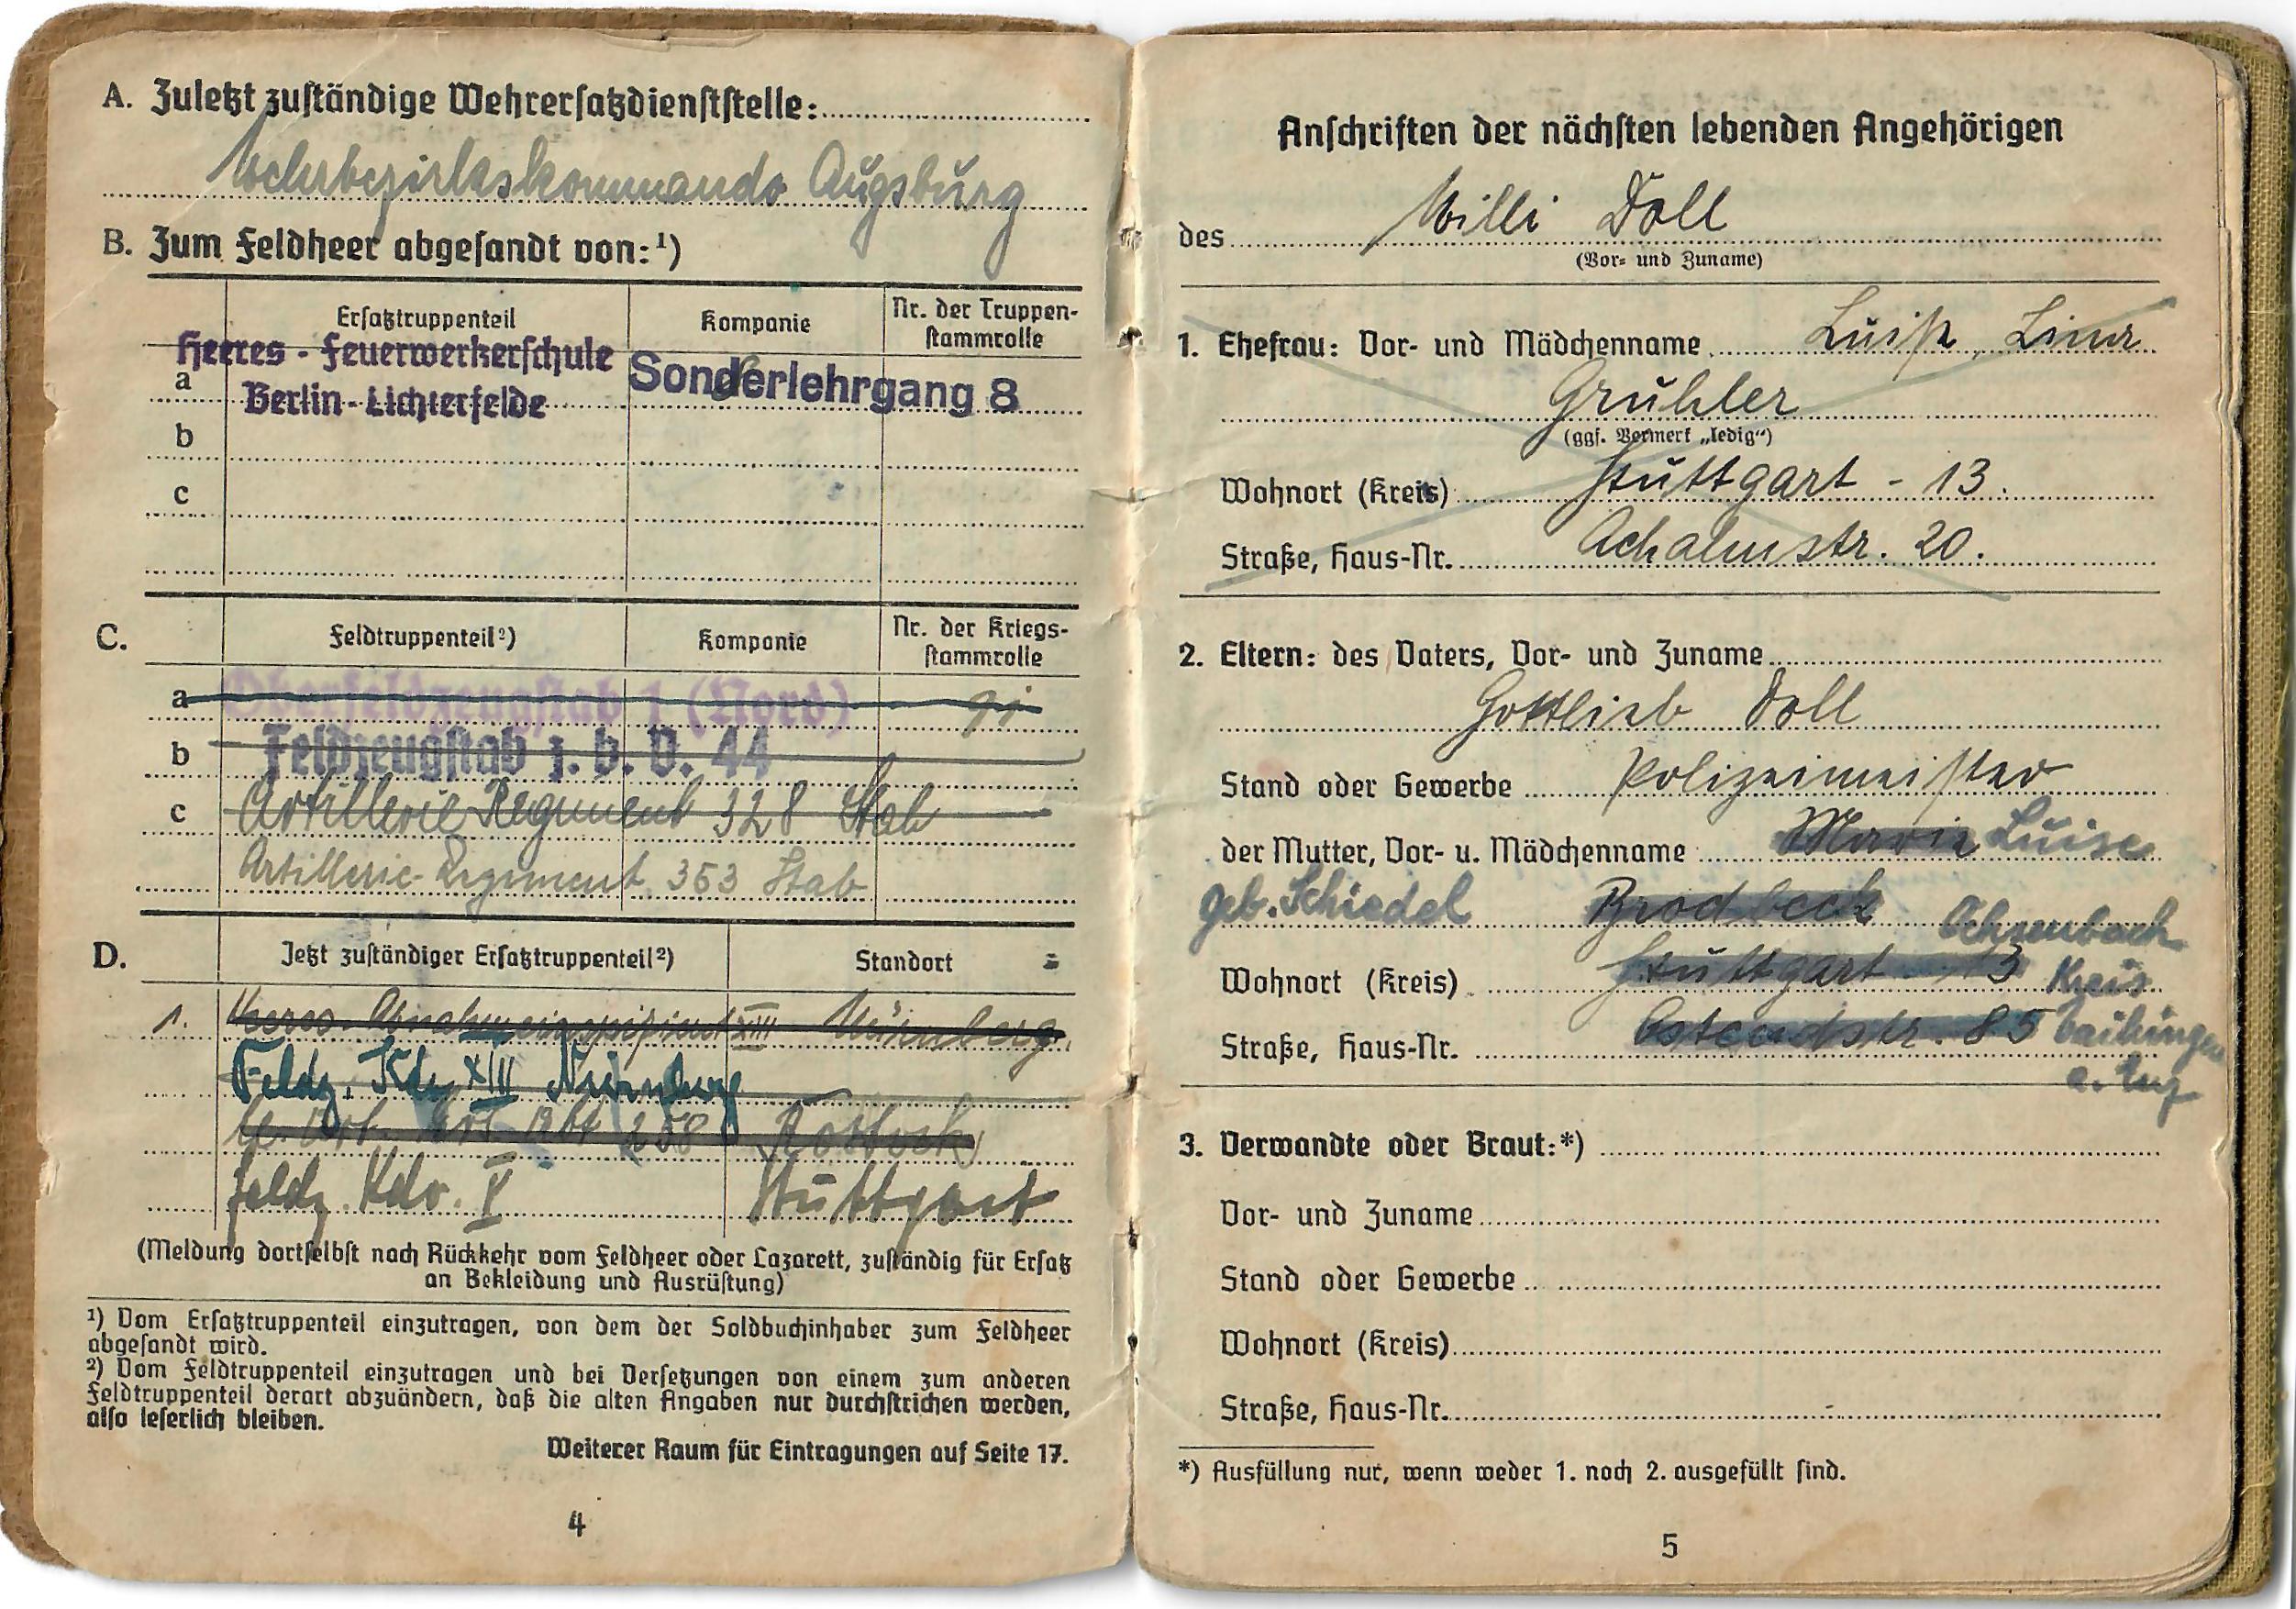 A. Zuletzt zuständige Wehrersatzdienststelle:
Wehrbezirkskommando Augsburg
B. Zum Feldheer abgesandt von:¹)
Ersatztruppenteil Kompanie Nr. der Truppen-
stammrolle
Heeres-Feuerwerkerschule
a Sonderlehrgang 8
Berlin-Lichterfelde
b
c
C. Feldtruppenteil²) Kompanie Nr. der Kriegs-
stammrolle
a Oberfeldzeugstab 1 (Nord) 91
b Feldzeugstab z. b. V. 44
c Artillerie Regiment 328 Stab
Artillerie-Regiment 353 Stab
D. Jetzt zuständiger Ersatztruppenteil²) Standort
1. Heeres-Abnahmeinspizient XIII Nürnberg
Feldz. Kdo XIII Nürnberg
Ers. Abt 258 Rostock
Feldz. Kdo. V Stuttgart
(Meldung dortselbst nach Rückkehr vom Feldheer oder Lazarett, zuständig für Ersatz
an Bekleidung und Ausrüstung)
¹) Vom Ersatztruppenteil einzutragen, von dem der Soldbuchinhaber zum Feldheer
abgesandt wird.
²) Vom Feldtruppenteil einzutragen und bei Versetzungen von einem zum anderen
Feldtruppenteil derart abzuändern, daß die alten Angaben nur durchstrichen werden,
also leserlich bleiben.
Weiterer Raum für Eintragungen auf Seite 17.
4
Anschriften der nächsten lebenden Angehörigen
des Willi Doll
(Vor- und Zuname)
1. Ehefrau: Vor- und Mädchenname Luise, Lina
Gruhler
(ggf. Vermerk „ledig“)
Wohnort (Kreis) Stuttgart - 13.
Straße, Haus-Nr. Achalmstr. 20.
2. Eltern: des Vaters, Vor- und Zuname
Gottlieb Doll
Stand oder Gewerbe Polizeimeister
der Mutter, Vor- u. Mädchenname Maria Luise
geb. Schiedel Brodbeck Ochsenbach
Wohnort (Kreis) Stuttgart 13 Kreis
Straße, Haus-Nr. Ostendstr. 85 Vaihingen
a. Enz
3. Verwandte oder Braut:*)
Vor- und Zuname
Stand oder Gewerbe
Wohnort (Kreis)
Straße, Haus-Nr.
*) Ausfüllung nur, wenn weder 1. noch 2. ausgefüllt sind.
5